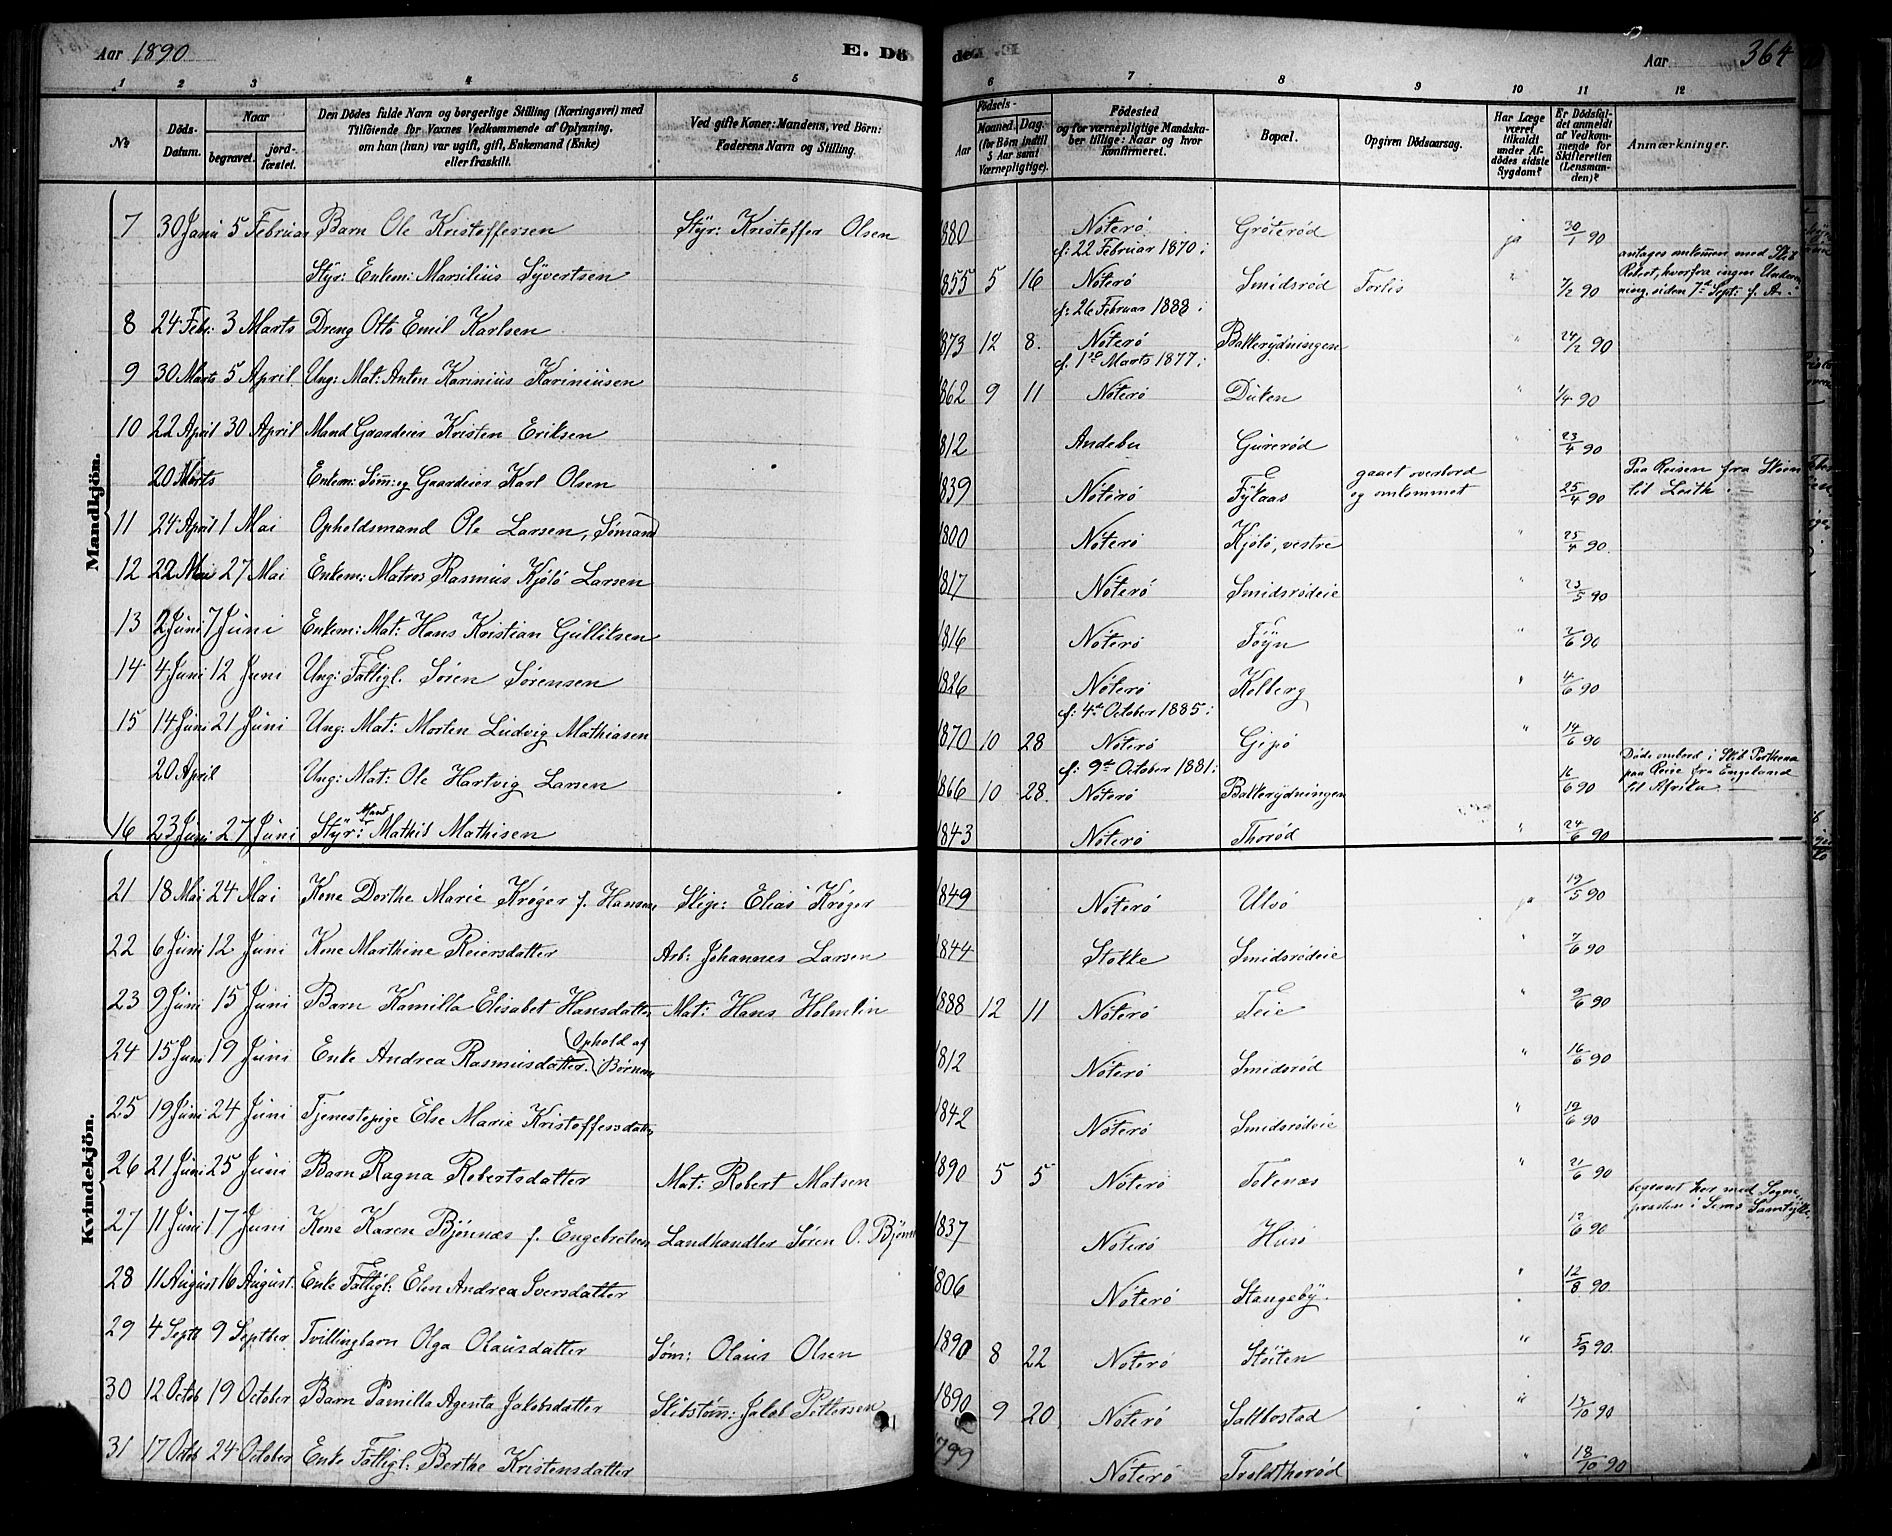 Aar 1890 E. Dö
1 2 3 4 5
№
Döds-Datum.
Naar
begravet. jordfæstet.
Den Dödes fulde Navn og borgerlige Stilling (Næringsvei) med
Tilföiende for Voxnes Vedkommende af Oplysning,
om han (hun) var ugift, gift, Enkemand (Enke)
eller fraskilt.
Ved gifte Koner: Mandens, ved Börn:
Faderens Navn og Stilling.
Mandkjön.
7 30 Janu 5 Februar Barn Ole Kristoffersen Styr: Kristoffer Olsen
Styr: Enkem: Marsilius Syvertsen
8 24 Febr: 3 Marts Dreng Otto Emil Karlsen
9 30 Marts 5 April Ung: Mat: Anton Karinius Kariniusen
10 22 April 30 April Mand Gaardeier Kristen Eriksen
20 Marts Enkem: Søm: og Gaardeier Karl Olsen
11 24 April 1 Mai Opholdsmand Ole Larsen, Sømand
12 22 Mai 27 Mai Enkem: Matros Rasmus Kjølö Larsen
13 2 Juni 7 Juni Enkem: Mat: Hans Kristian Gulliksen
14 4 Juni 12 Juni Ung: Fattigl. Søren Sørensen
15 14 Juni 21 Juni Ung: Mat: Morten Ludvig Mathiasen
20 April Ung: Mat: Ole Hartvig Larsen
Mand
16 23 Juni 27 Juni Styr: Mathis Mathisen
Kvindekjön.
21 18 Mai 24 Mai Kone Dorthe Marie Krøger f. Hansen Skip: Elias Krøger
22 6 Juni 12 Juni Kone Marthine Reiersdatter Arb: Johannes Larsen
23 9 Juni 15 Juni Barn Kamilla Elisabet Hansdatter Mat: Hans Holmlin
24 15 Juni 19 Juni Enke Andrea Rasmusdatter. (Ophold af Börnene
25 19 Juni 24 Juni Tjenestepige Else Marie Kristoffersdatter
26 21 Juni 25 Juni Barn Ragna Robertsdatter Mat: Robert Matsen
27 11 Juni 17 Juni Kone Karen Bjønnæs f. Engebretsen Landhandler Søren O. Bjønn
28 11 August 16 August. Enke Fattigl: Elen Andrea Iversdatter
29 4 Septb 9 Septber Tvillingbarn Olga Olausdatter Søm: Olaus Olsen
30 12 Octob 19 October Barn Pamilla Agenta Jakobsdatter Skibstøm: Jakob Pettersen
31 17 Octob 24 October Enke Fattigl: Berthe Kristensdatter
deд Aar 364
6 7 8 9 10 11 12
Födsels-
Aar
Maaned. Dag.
(for Börn indtil
5 Aar samt
Værnepligtige).
Födested
og for værnepligtige Mandskaber tillige: Naar og hvor
konfirmeret.
Bopæl.
Opgiven Dödsaarsag.
Har Læge
været
tilkaldt
under Afdödes sidste
Sygdom?
Er Dödsfaldet anmeldt
af Vedkommende for
Skifteretten
(Lensmanden)?
Anmærkninger.
1880 Nøterø Grøterød ja 30/1 90
f: 22 Februar 1870:
1855 5 16 Nøterø Smidsrød Forlis " 7/2 90 antages omkommen med Skib
Robert, hvorfra ingen Underretning siden 7de Sept: f. A.
f: 26 Februar 1888:
1873 12 8. Nøterø Bakkerydningen " 24/2 90
f: 1ste Marts 1877:
1862 9 11 Nøterø Duken " 1/4 90
1812 Andebu Gurerød " 23/4 90
1839 Nøterø Fylaas gaaet overbord
og omkommet 25/4 90 Paa Reisen fra Skien
til Leith.
1800 Nøterø Kjølø, vestre " 25/4 90.
1817 Nøterø Smidsrødeie " 23/5 90
1816 Nøterø Føyn " 2/6 90
1826 Nøterø Kolberg " 4/6 90
f: 4de October 1885:
1870 10 28 Nøterø Gipø " 14/6 90
f: 9de October 1881:
1866 10 28. Nøterø Bakkerydningen 16/6 90 Døde ombord i Skib Parthena
paa Reise fra Engeland
til Afrika
1843 Nøterø Thorød " 24/6 90
1849 Nøterø Ulvø ja 19/5 90
1844 Stokke Smidsrødeie " 7/6 90
1888 12 11 Nøterø Teie " 9/6 90
1812 Nøterø Smidsrød " 16/6 90
1842 Nøterø Smidsrødeie " 19/6 90
1890 5 5 Nøterø Tokenæs " 21/6 90
1837 Nøterø Husø 12/6 90 begravet her med Sognepræsten i Sems Samtykke.
1806 Nøterø Stangeby. " 12/8 90.
1890 8 22 Nøterø Støiten " 5/9 90.
1890 9 20 Nøterø Saltbostad " 13/10 90
1799 Nøterø Troldthorød " 18/10 90